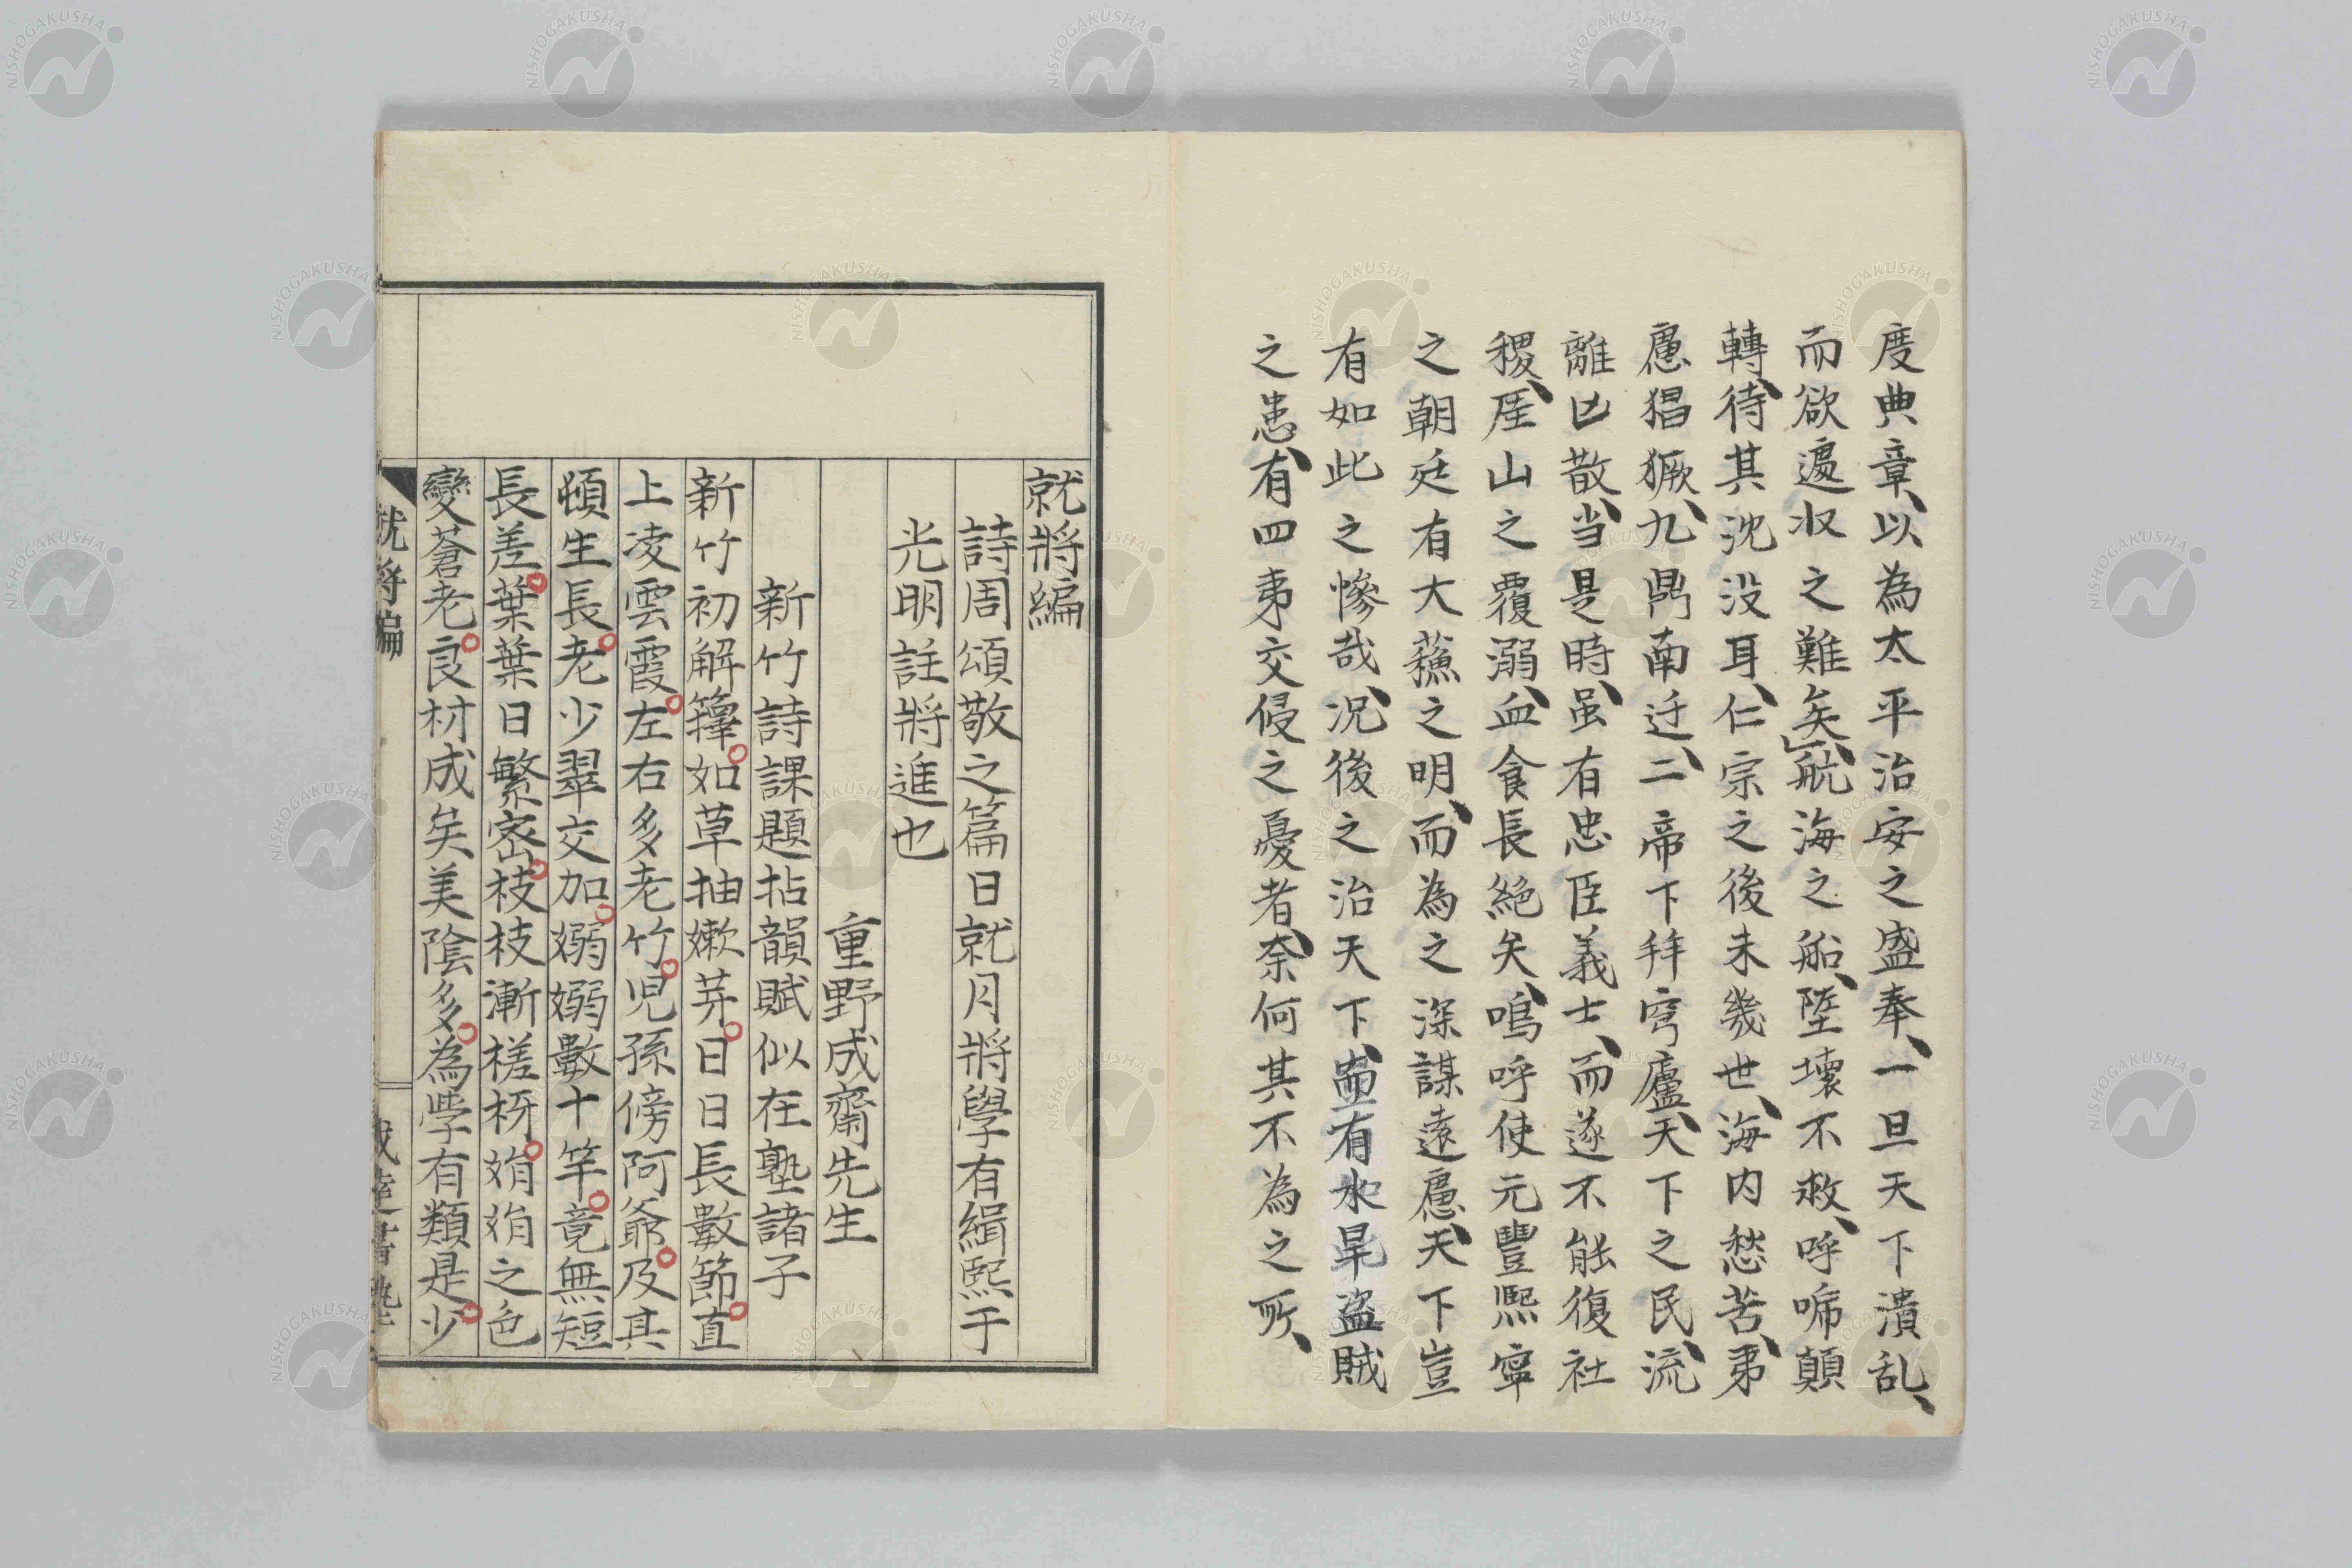 度典章、以為太平治安之盛奉、一旦天下潰乱、
而欲遽収之難矣、」航海之船、陸壊不救、呼啼顛
轉、待其沈没耳、仁宗之後未幾世、海内愁苦、夷
慮猖獗、九鼎南迁、二帝下拜穹廬、天下之民、流
離亡散、当是時、虽有忠臣義士、而遂不能復社
稷、厓山之覆溺、血食長絶矣、嗚呼使元豊熙寧
之朝廷有大蘓之明、而為之深謀遠慮、天下豈
有如此之惨哉、况後之治天下、啚有水旱盗賊
之患、有四夷交侵之憂者、奈何其不為之所、
就將編
詩周頌敬之篇日就月將學有緝熙于
光明註將進也
重野成齋先生
新竹詩課題拈韻賦似在塾諸子
新竹初解籜。如草抽嫩芽。日日長數節。直
上凌雲霞。左右多老竹。児孫傍阿爺。及其
頓生長。老少翠交加。嫋嫋數十竿。竟無短
長差。葉葉日繁密。枝枝漸槎枒。娟娟之色
變蒼老。良材成矣美陰多。為学有類是。少
就將編
成達書塾
NISHOGAKUSHA